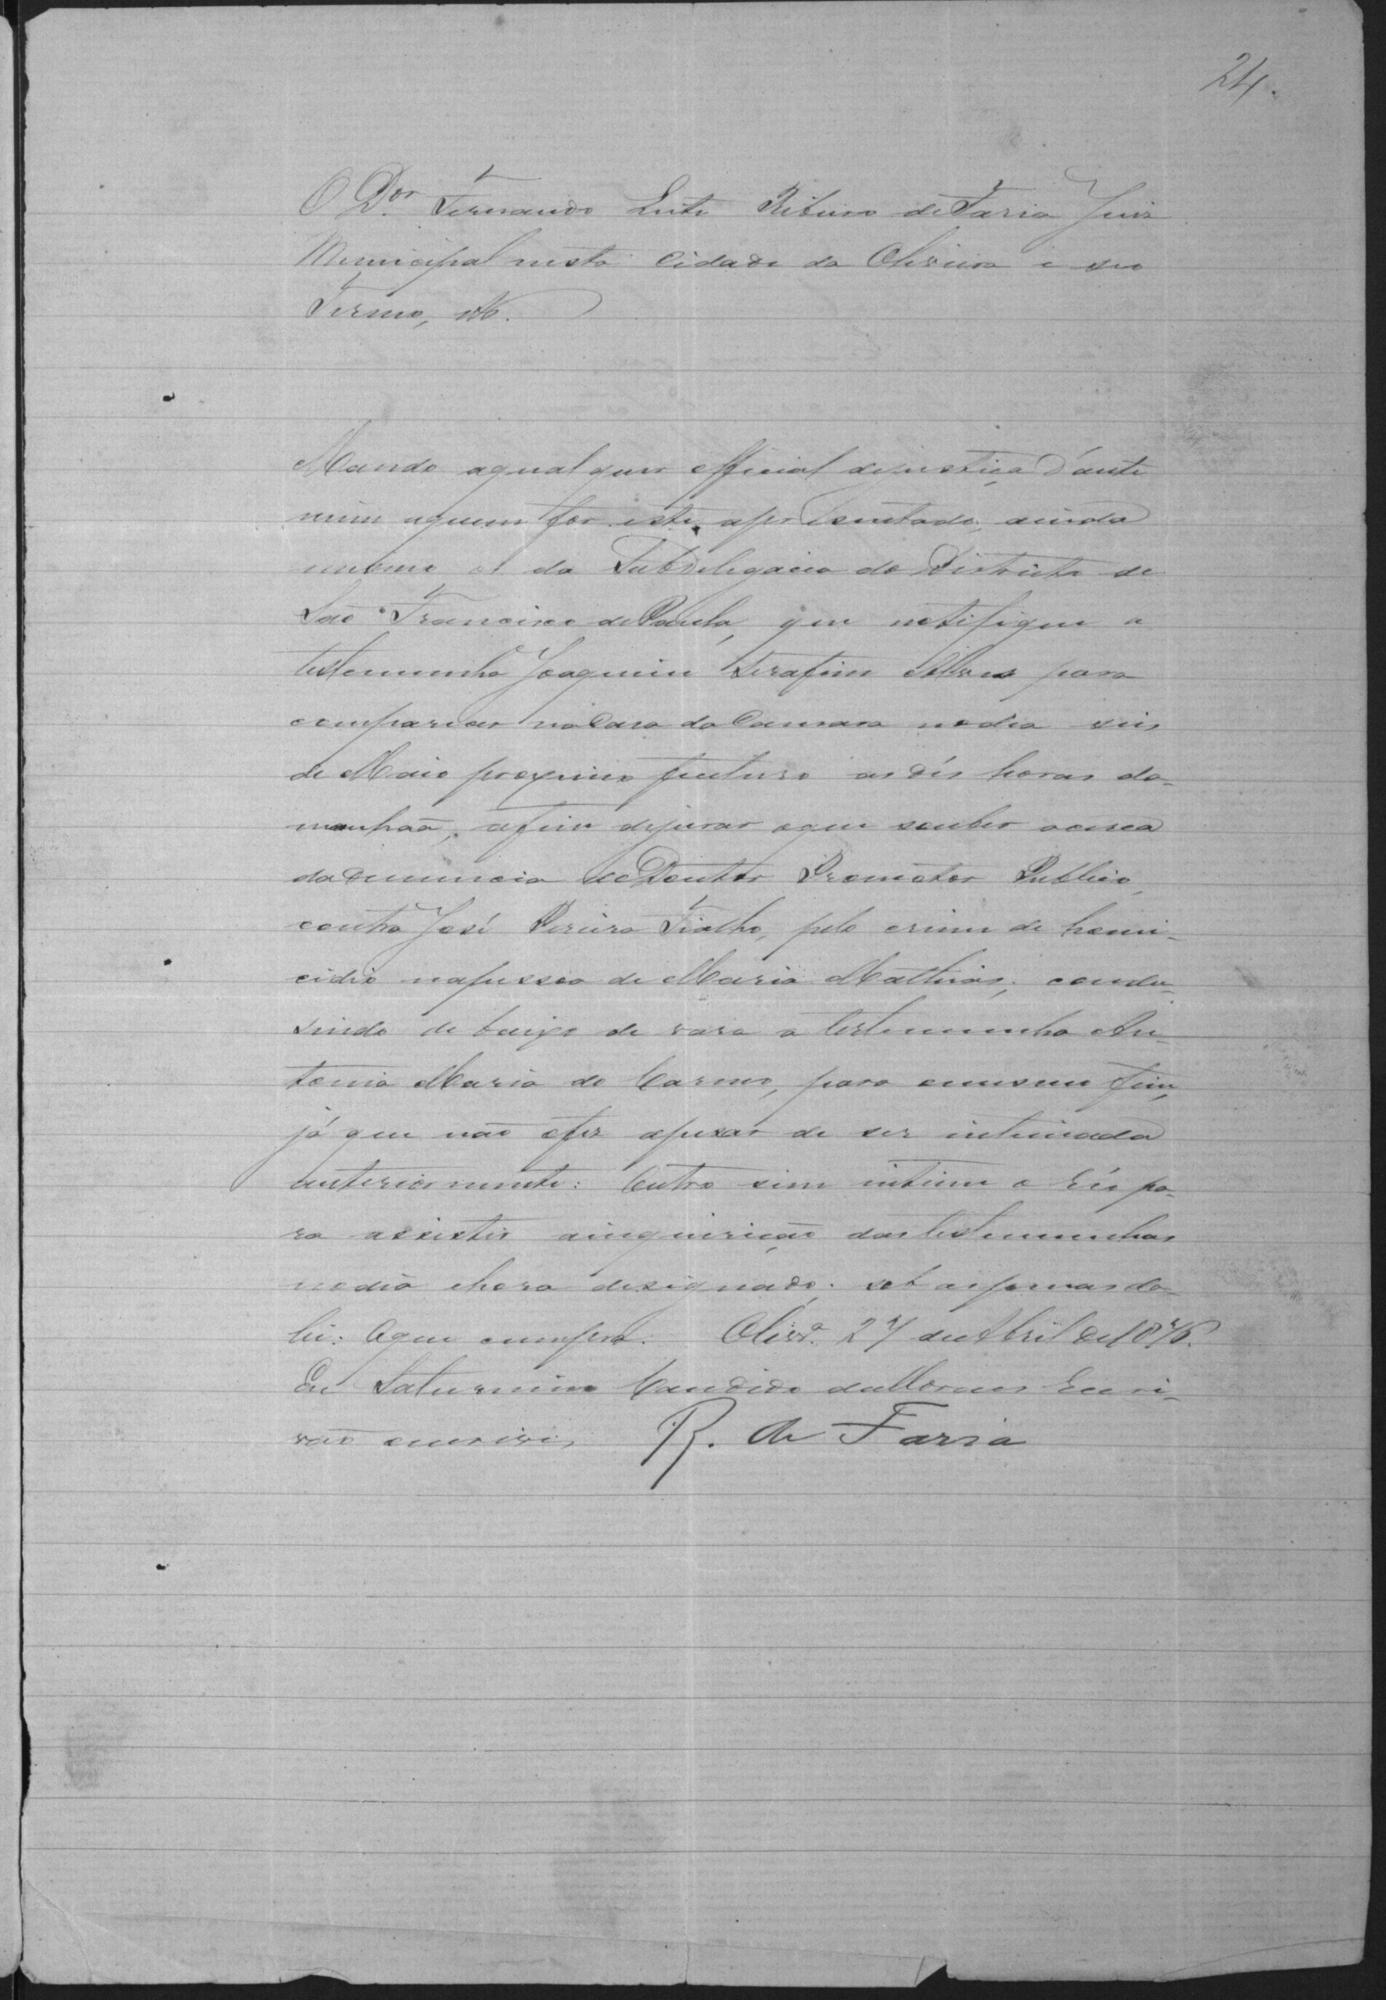 24.
O Dor. Fernando Leite Ribeiro de Faria Juiz
Municipal nesta Cidade da Oliveira e seu
Termo, etc.
Mando aqualquer official dejustiça d'ante
mim aquem for este apresentado, ainda
mesmo os da Subdelegacia do Districto de
São Francisco de Paula, que notifique a
testemunha Joaquim Serafim Alves para
comparecer na Casa da Camara nodia seis
de Maio proximo futuro as dés horas da
manhaã, afim dejurar oque souber acerca
da denuncia do Doutor Promotor Publico,
contra José Pereira Fialho, pelo crime de homi-
cidio napessoa de Maria Mathias; condu-
sindo de baixo de vara a testemunha An-
tonia Maria do Carmo, para omesmo fim,
já que não ofez apesar de ser intimada
anteriormente: Outro sim intime o Réo pa-
ra assistir ainquirição das testemunhas
nodia ehora designado; sob aspenas da
lei: Oque cumpra. Olivra. 27 de Abril de 1876.
Eu Saturnino Candido de Moraes Escri-
vão escrevi, R. de Faria